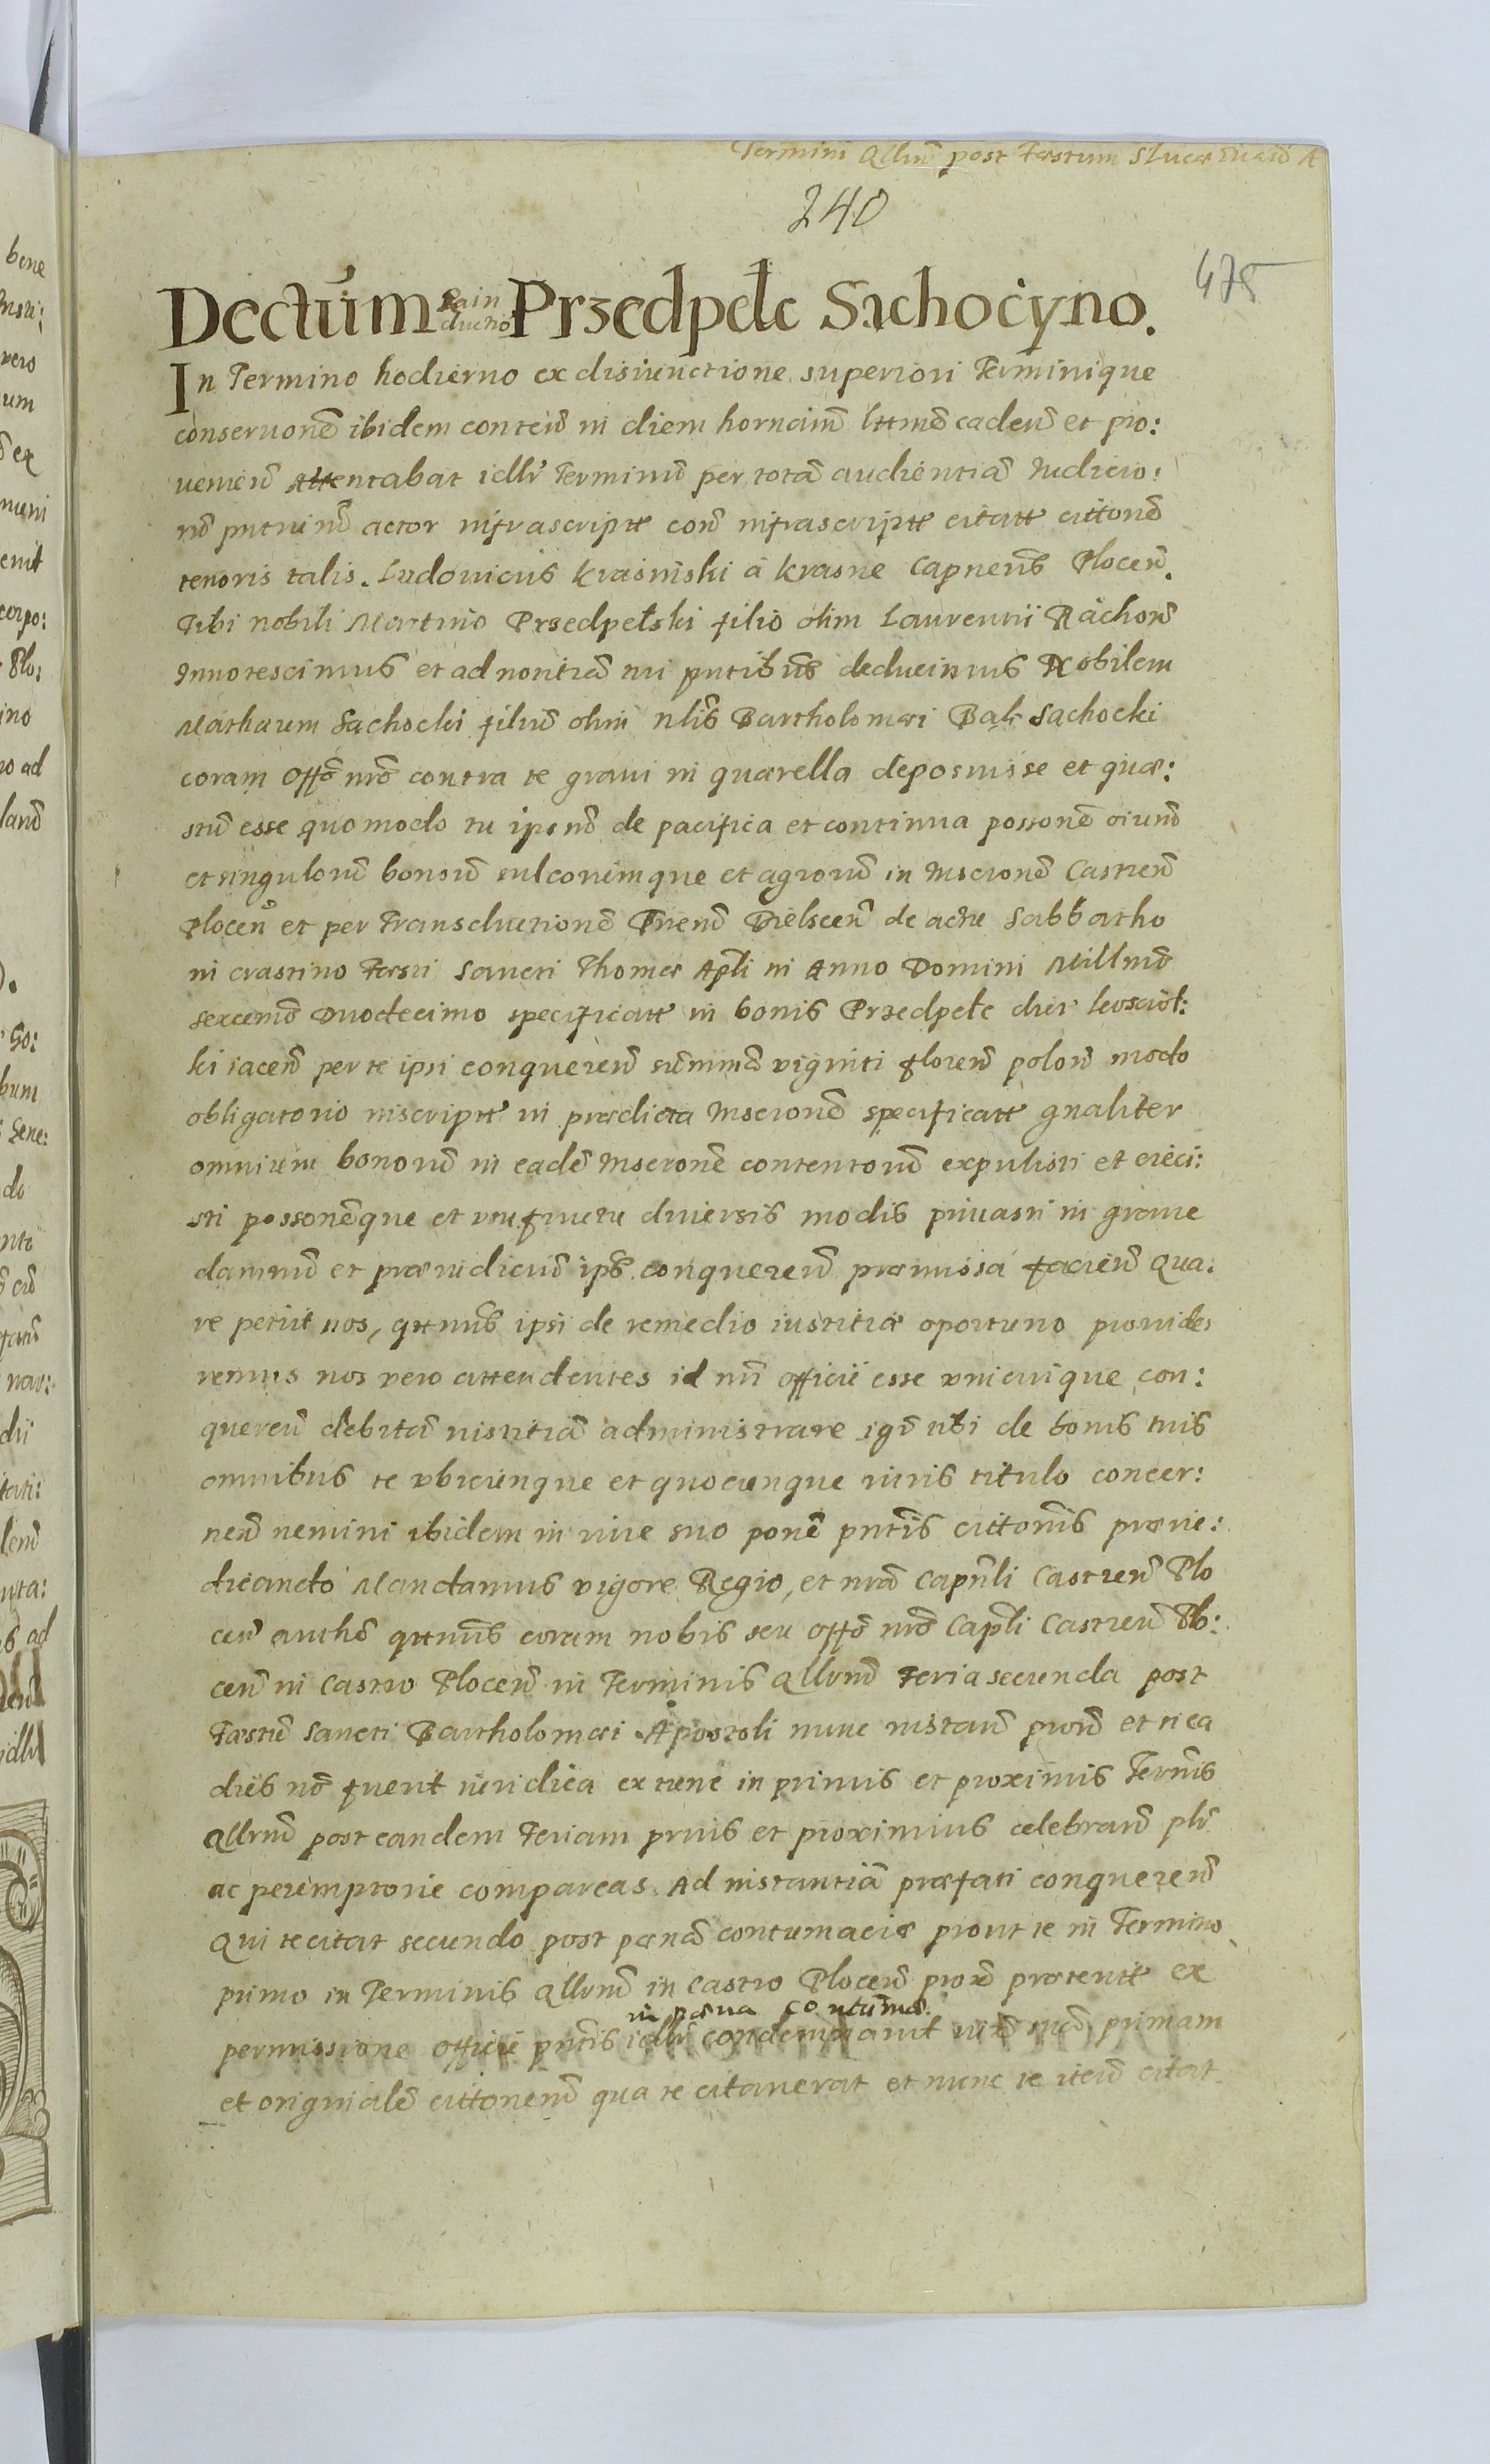 Termini Qllrum post Festum S Lucae
240
478
Dectum Rein ductio Przedpełc Sachocyno.
In Termino hodierno ex disiunctione superiori Terminique
conseruone ibidem conten in diem hornam lttme caden et pro:
uenien Attentabat idllr Terminu per tota audientia Iudicio:
ru pntium actor infrascriptt con infrascriptt citatt cittone
tenoris talis. Ludouicus Krasinski a Krasne Capneus Plocen.
Tibi nobili Martino Przedpełski filio olim Laurentii Rachon
Innotescimus et ad notitia tui pntibus deducimus Nobilem
Mathaeum Sachocki filiu olim nlis Bartholomaei Bak Sachocki
coram Offo nro contra te graui in quaerella deposuisse et quae:
stu esse quomodo tu ipsu de pacifica et continua possone oiunu
et singuloru bonoru sulcorumque et agroru in Inscrone Castren
Plocen et per Transductione Trenu Bielscen de actu Sabbatho
in crastino Festi Sancti Thomae Apli in Anno Domini Millmo
sexcenmo Duodecimo specificatt in bonis Przedpełc dict kosciol:
ki iacen per te ipsi conqueren summa viginti floren polon modo
obligatorio inscriptt in praedicta Inscrone specificatt gnaliter
omnium bonoru in eade Inscrone contentoru expulisti et eieci:
sti possoneque et usufructu diuersis modis priuasti in graue
damnu et praeiudiciu ips conqueren praemissa facien Qua:
re petiit nos, qttnus ipsi de remedio iustitiae oportuno prouide:
remus nos vero attendentes id nri officii esse vnicuique con:
queren debita iustitia administrare igr tibi de bonis tuis
omnibus te vbicunque et quocunque iuris titulo concer:
nen nemini ibidem in iure suo pone pntis cittonis praeiu:
dicando Mandamus vigore Regio, et nra Capnli Castren Plo
cen autho qttnus coram nobis seu offo nro Capli Castren Plo:
cen in Castro Plocen in Terminis Qllrum Feria secunda post
Festu Sancti Bartholomaei Apostoli nunc instan prox et si ea
dies no fuerit iuridica ex tunc in primis et proximis Termis
Qllrum post eandem Feriam prius et proximius celebran plr
ac peremptorie compareas Ad instantia praefati conqueren
Qui te citat secundo post paena contumaciae prout te in Termino
primo in Terminis Qllrum in Castro Plocen prox praeteritt ex
in paena contumac
permissione officii pntis idllr condemnauit iuxa sua primam
et originale cittonem qua te citauerat et nunc te iteru citat